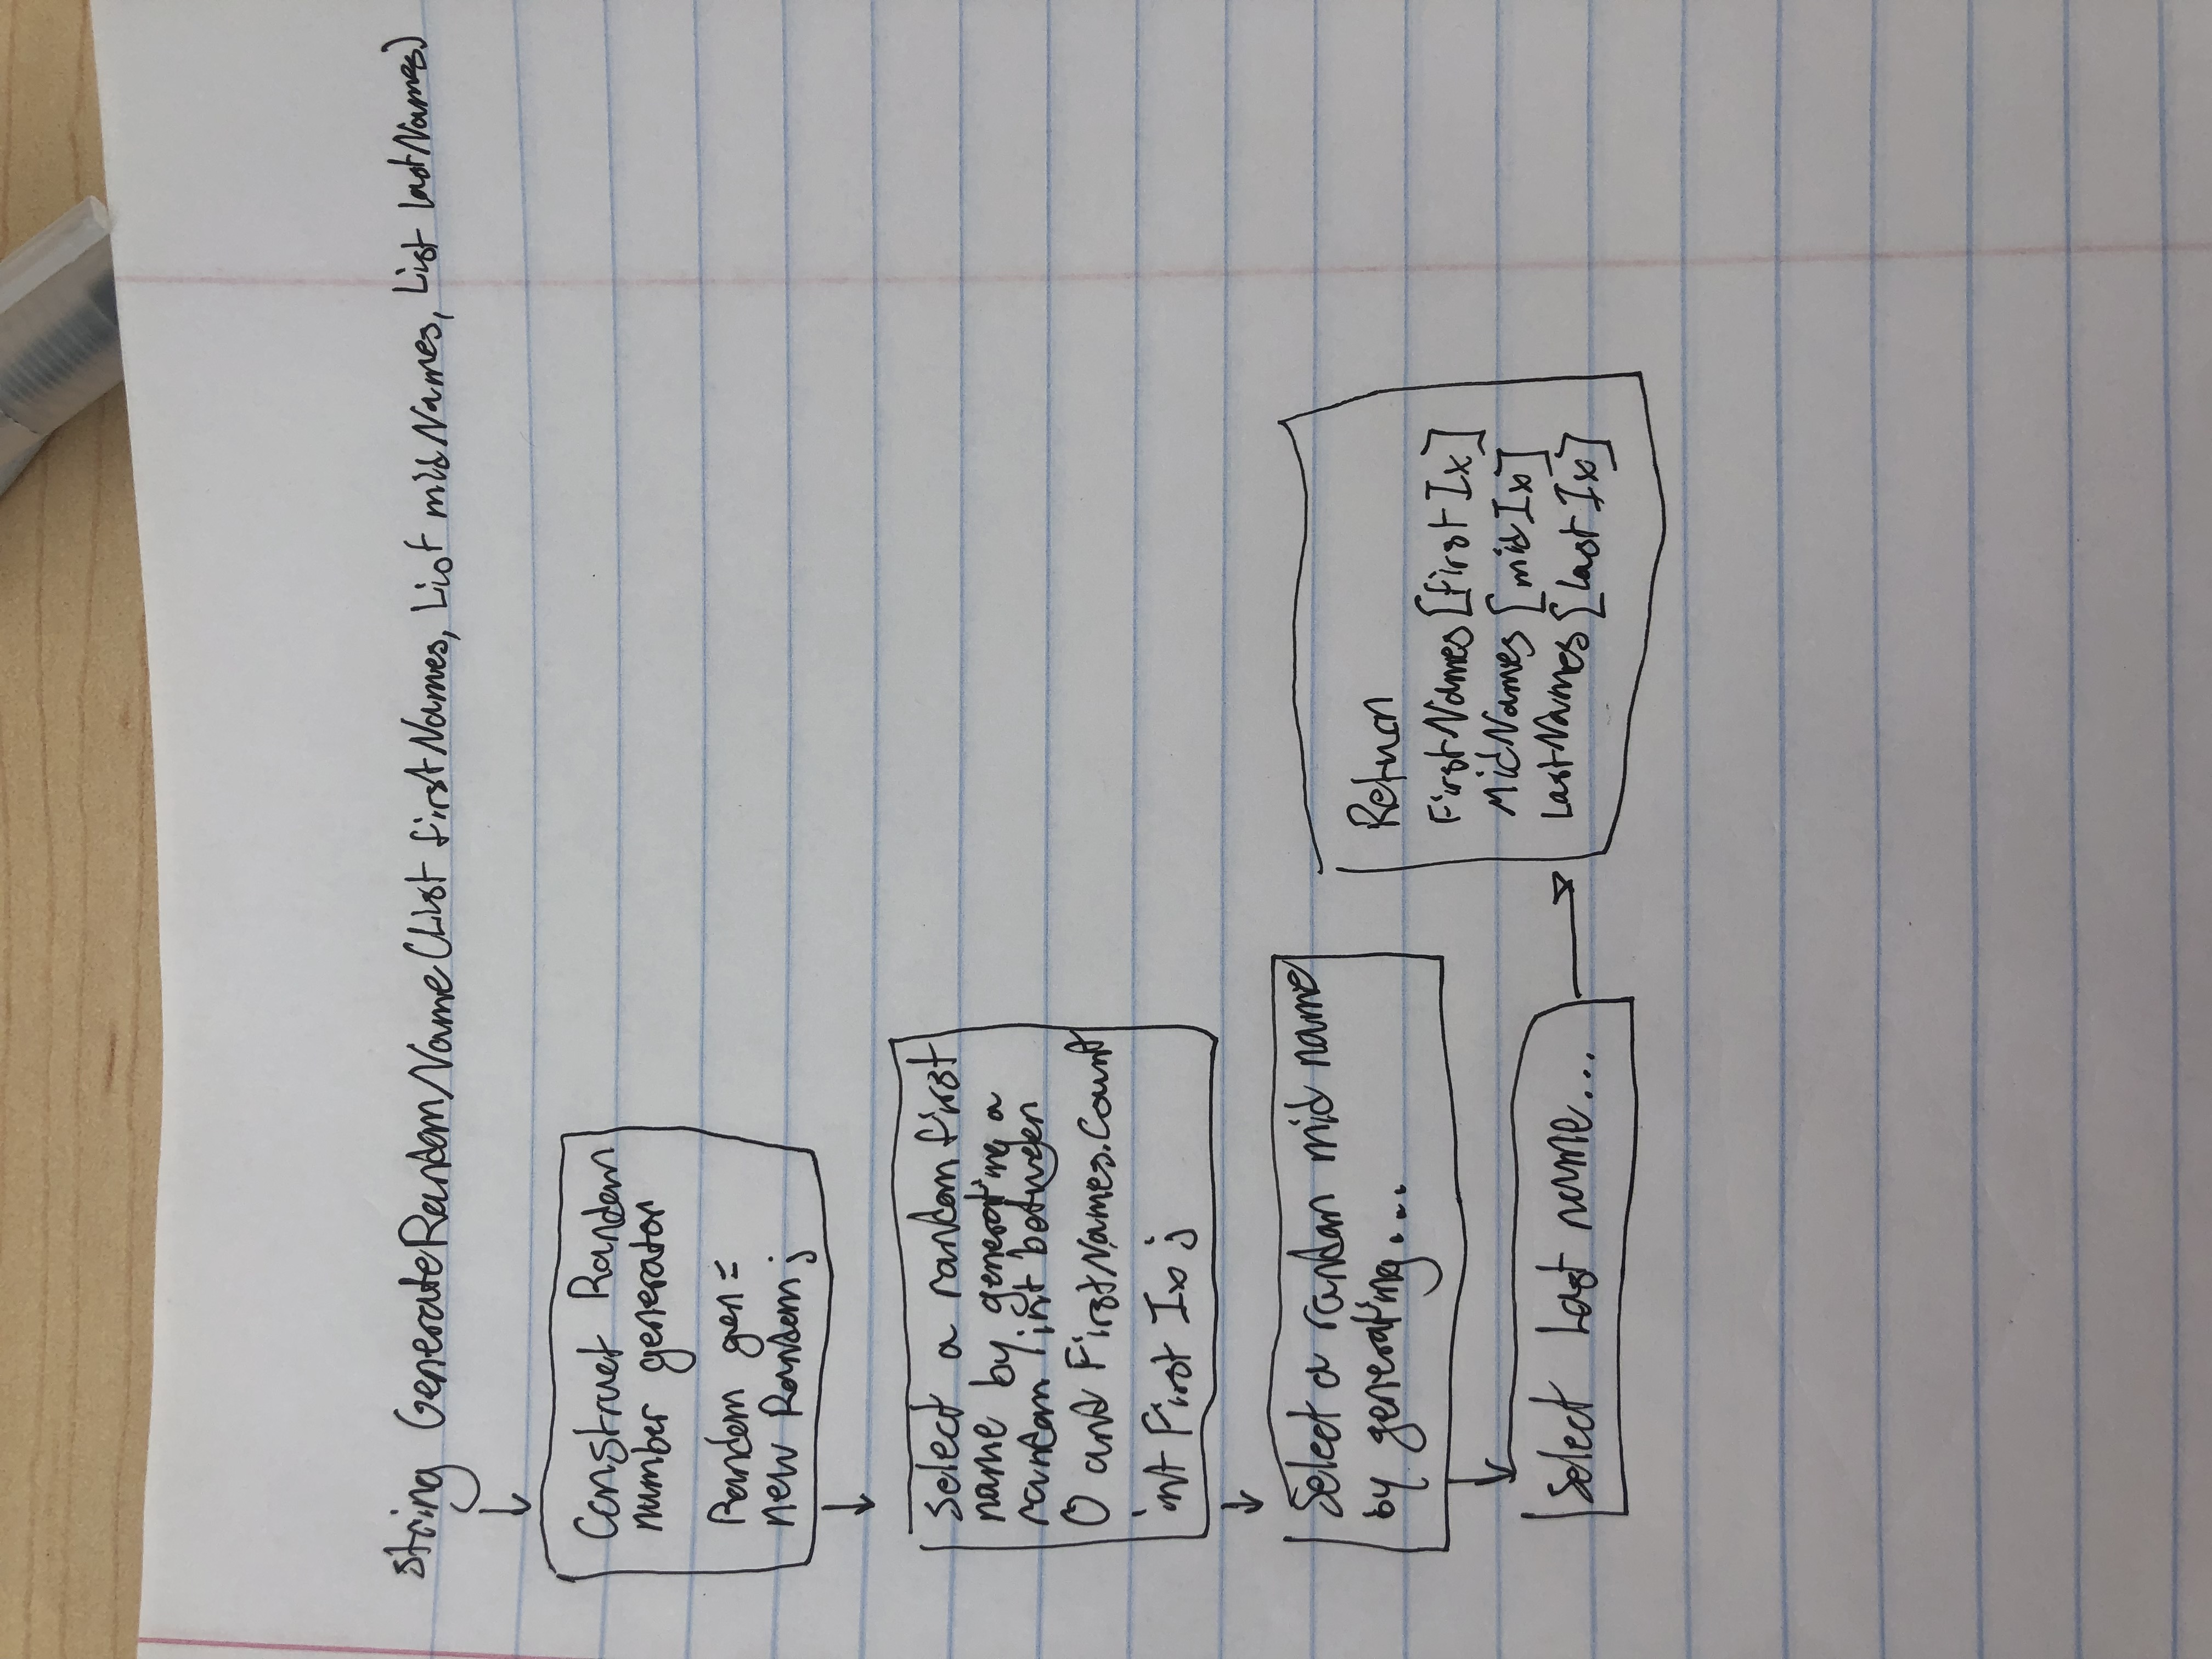 string GenerateRandomName(List firstNames, List midNames, List lastNames)
Construct Random
number generator
Random gen =
new Random;
Select a random first
name by generating a
random int between
0 and FirstNames.Count
int First Ix;
Select a random mid name
by generating...
Select Last name...
Return
FirstNames [first Ix]
MidNames [mid Ix]
LastNames [last Ix]